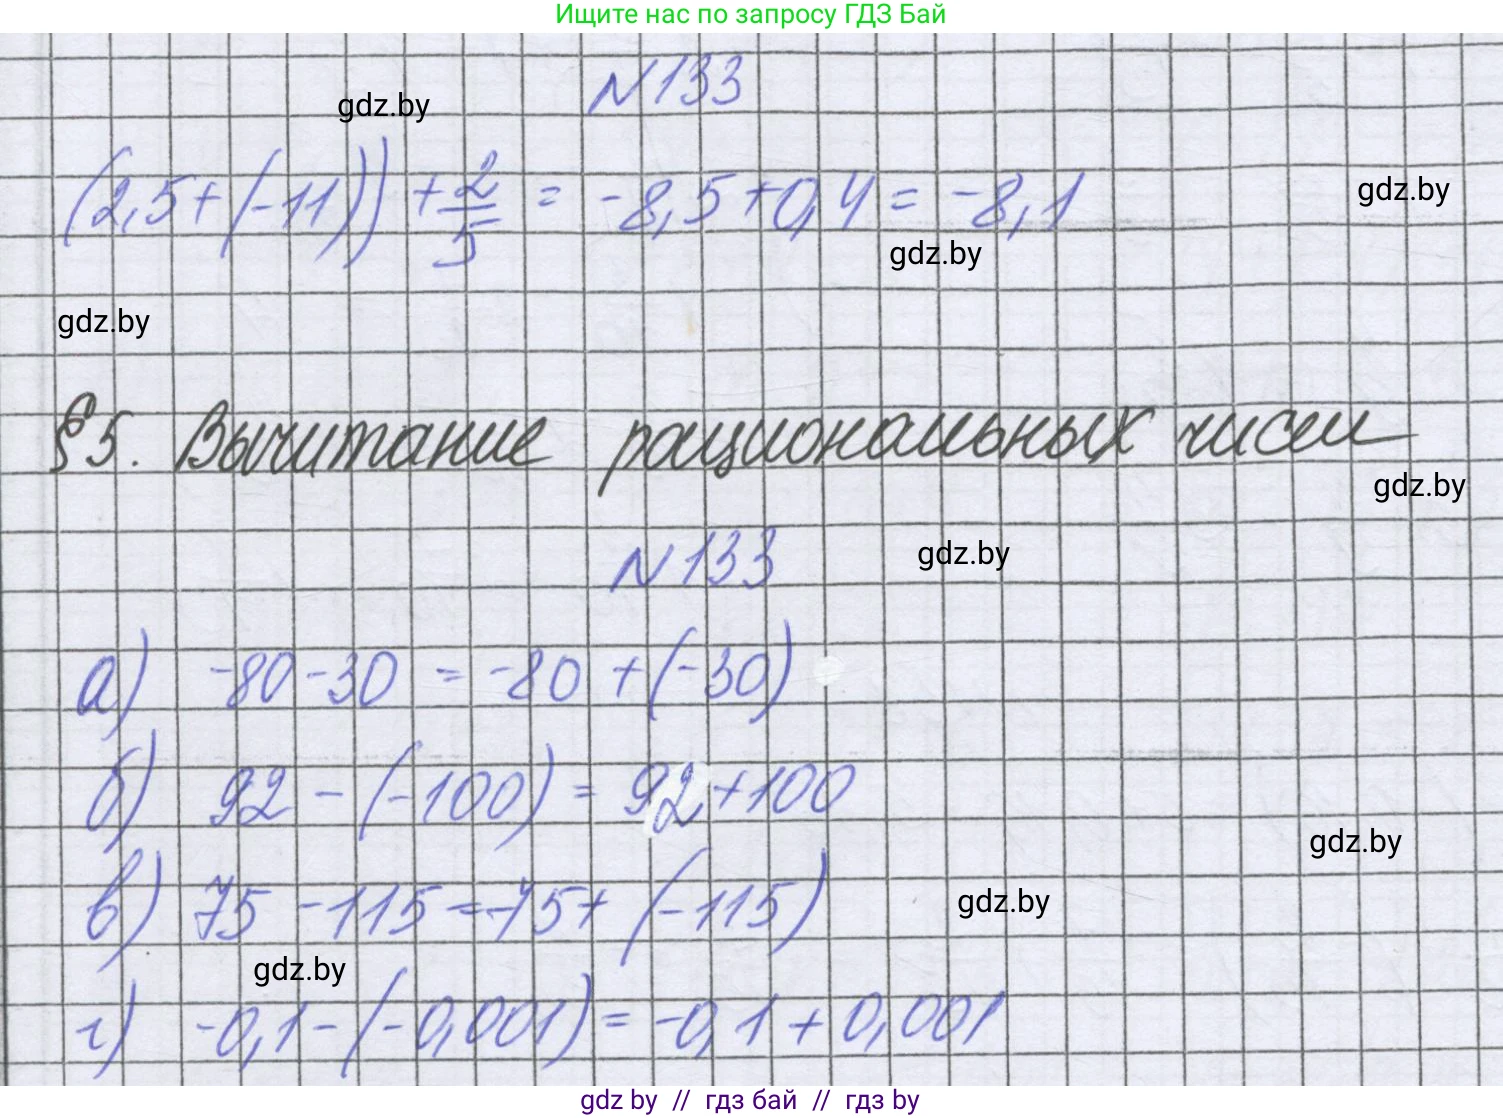 Ищите нас по запросу ГДЗ Бай
N 133
gdz.by
(2,5+(-11))+2/5 = -8,5+0,4 = -8,1
gdz.by
gdz.by
gdz.by
§5. Вычитание рациональных чисел
gdz.by
N 133
gdz.by
а) -80-30 = -80 +(-30)
б) 92 - (-100) = 92+100
gdz.by
в) 75 -115=75+ (-115)
gdz.by
gdz.by
г) -0,1-(-0,001) = -0,1 + 0,001
gdz by // гдз бай // гдз by